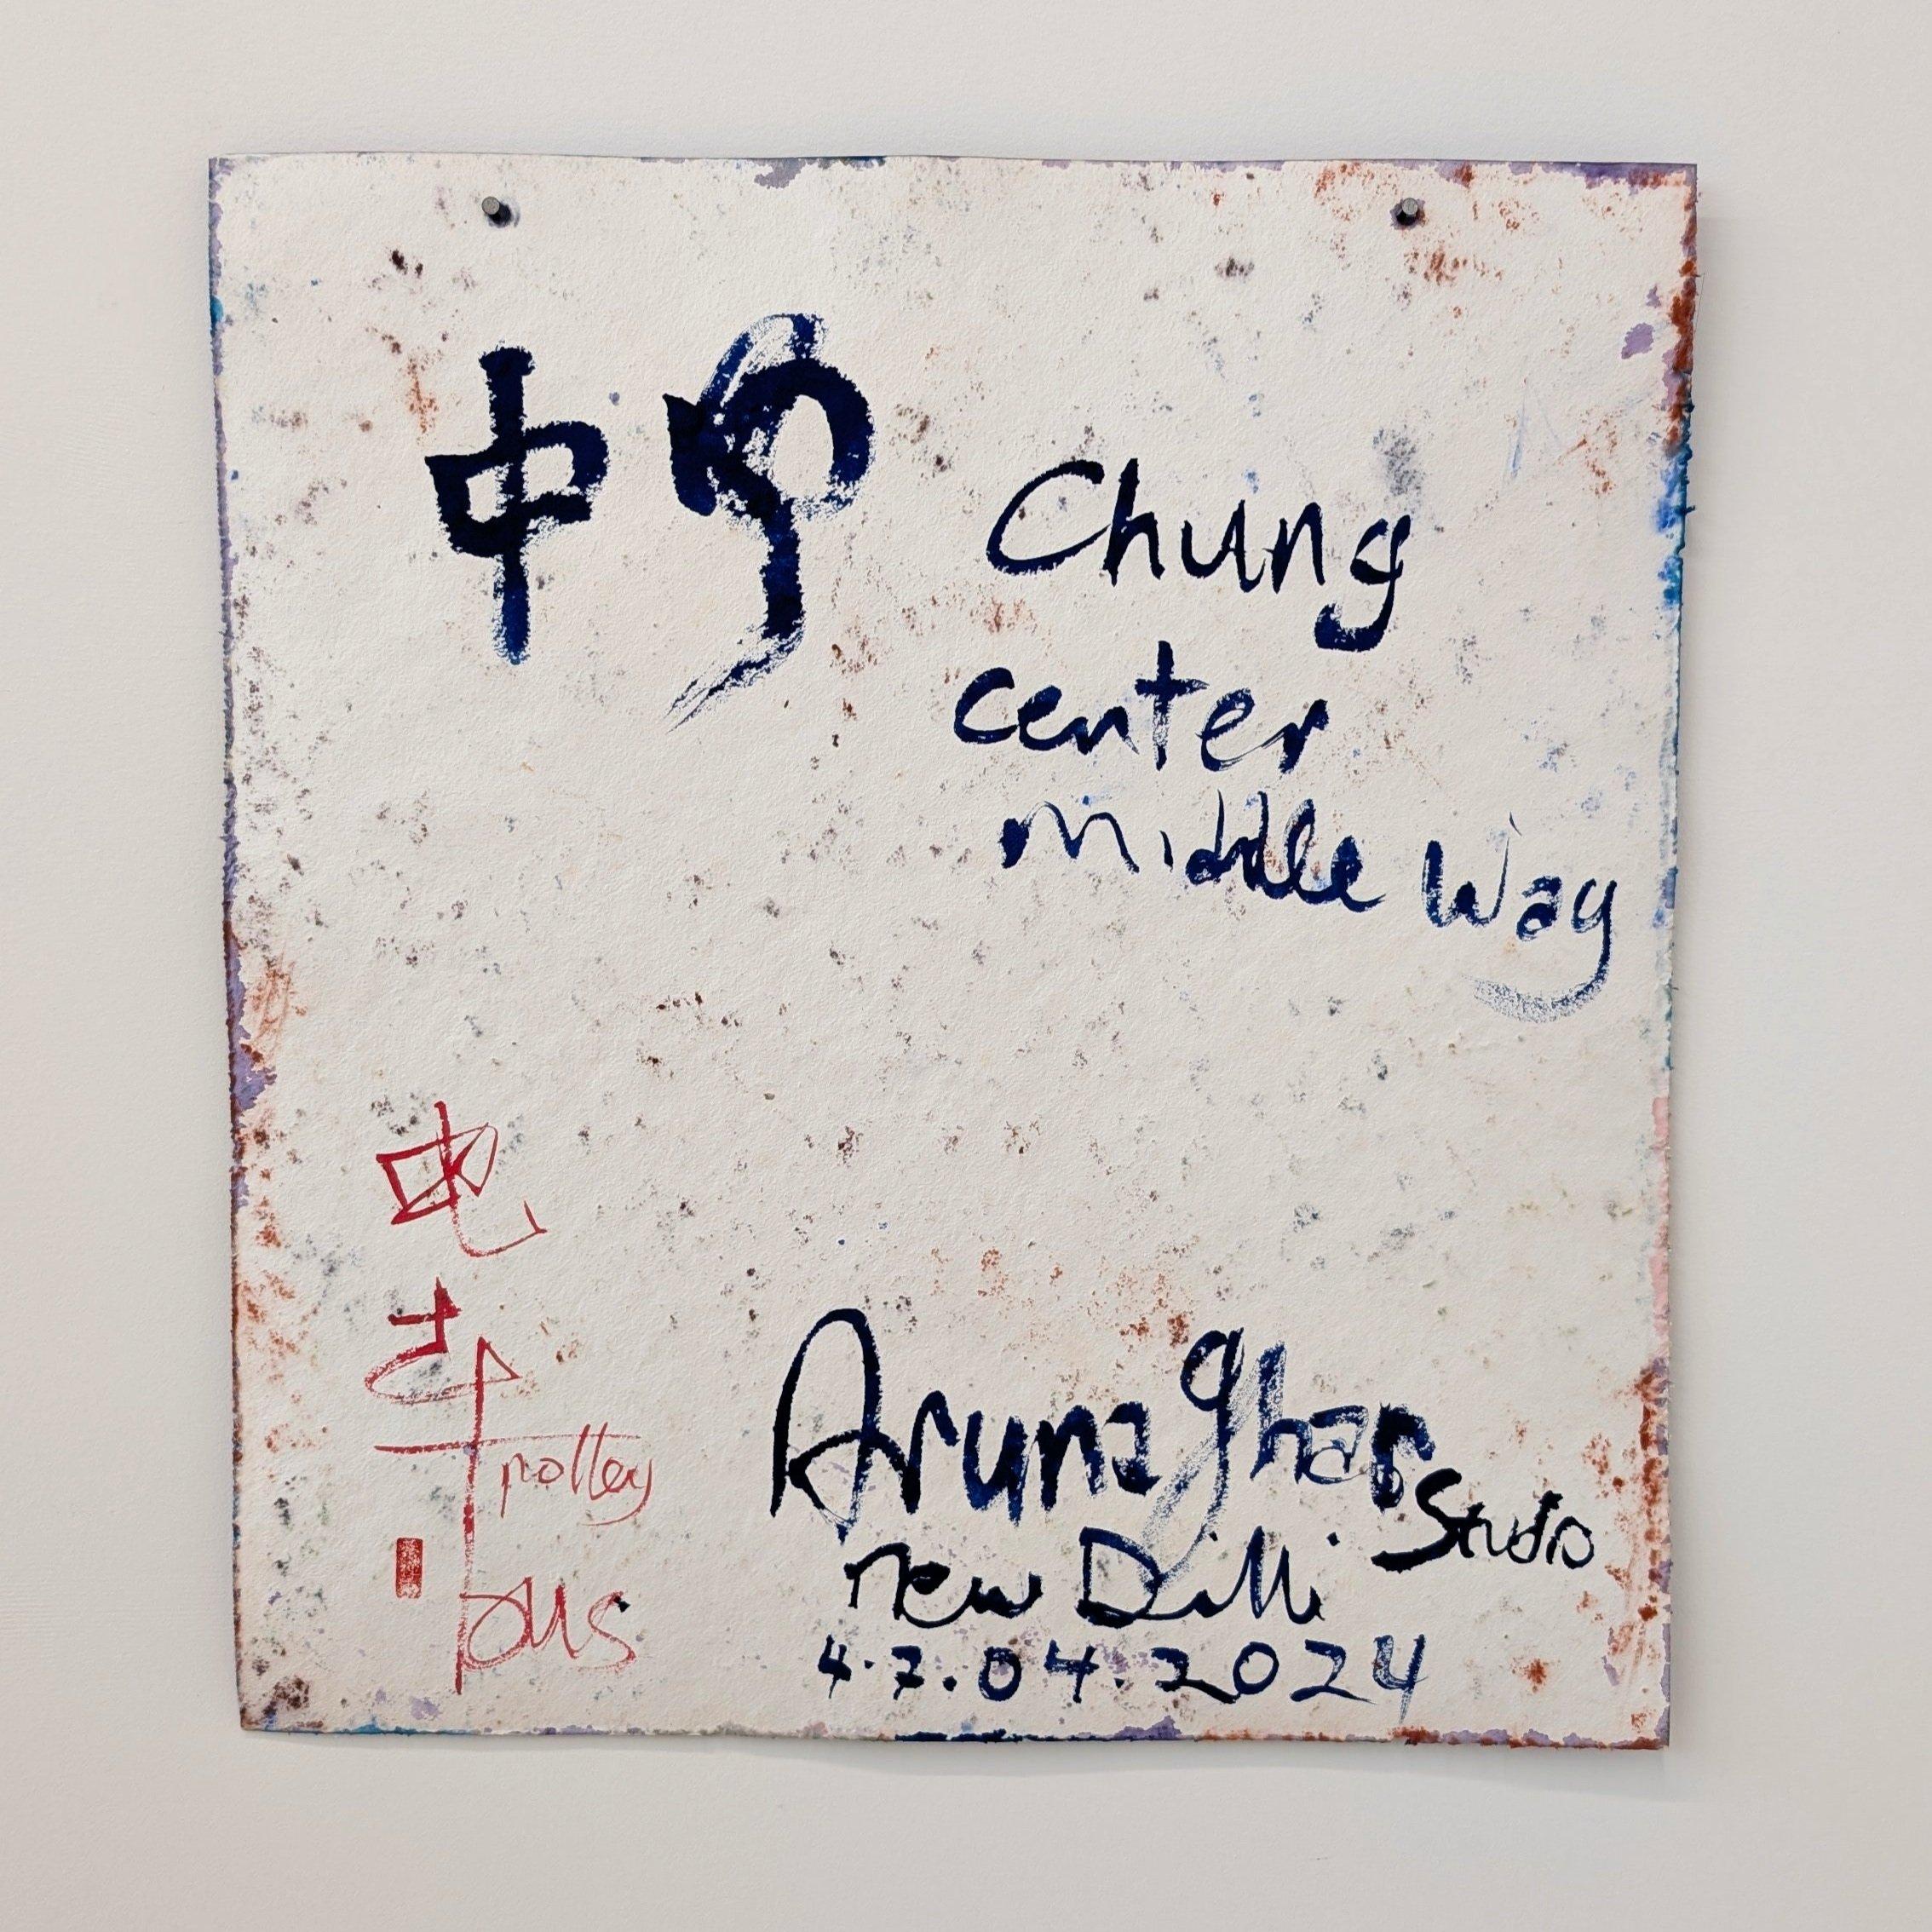 中 中 Chung
center
middle Way
Arunaghar
Studio
new Dilli
4.7.04.2024